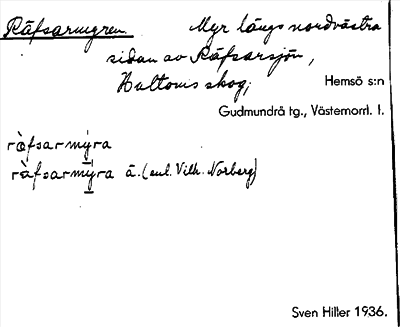 Räfsarmyren. Myr längs nordvästra
sidan av Räfsarsjön,
Hultoms skog; Hemsö s:n
Gudmundrå tg., Västernorrl. l.
rà̀fsarmýra
rà̀fsarmýra ä. (enl. Vilh. Norberg)
Sven Hiller 1936.